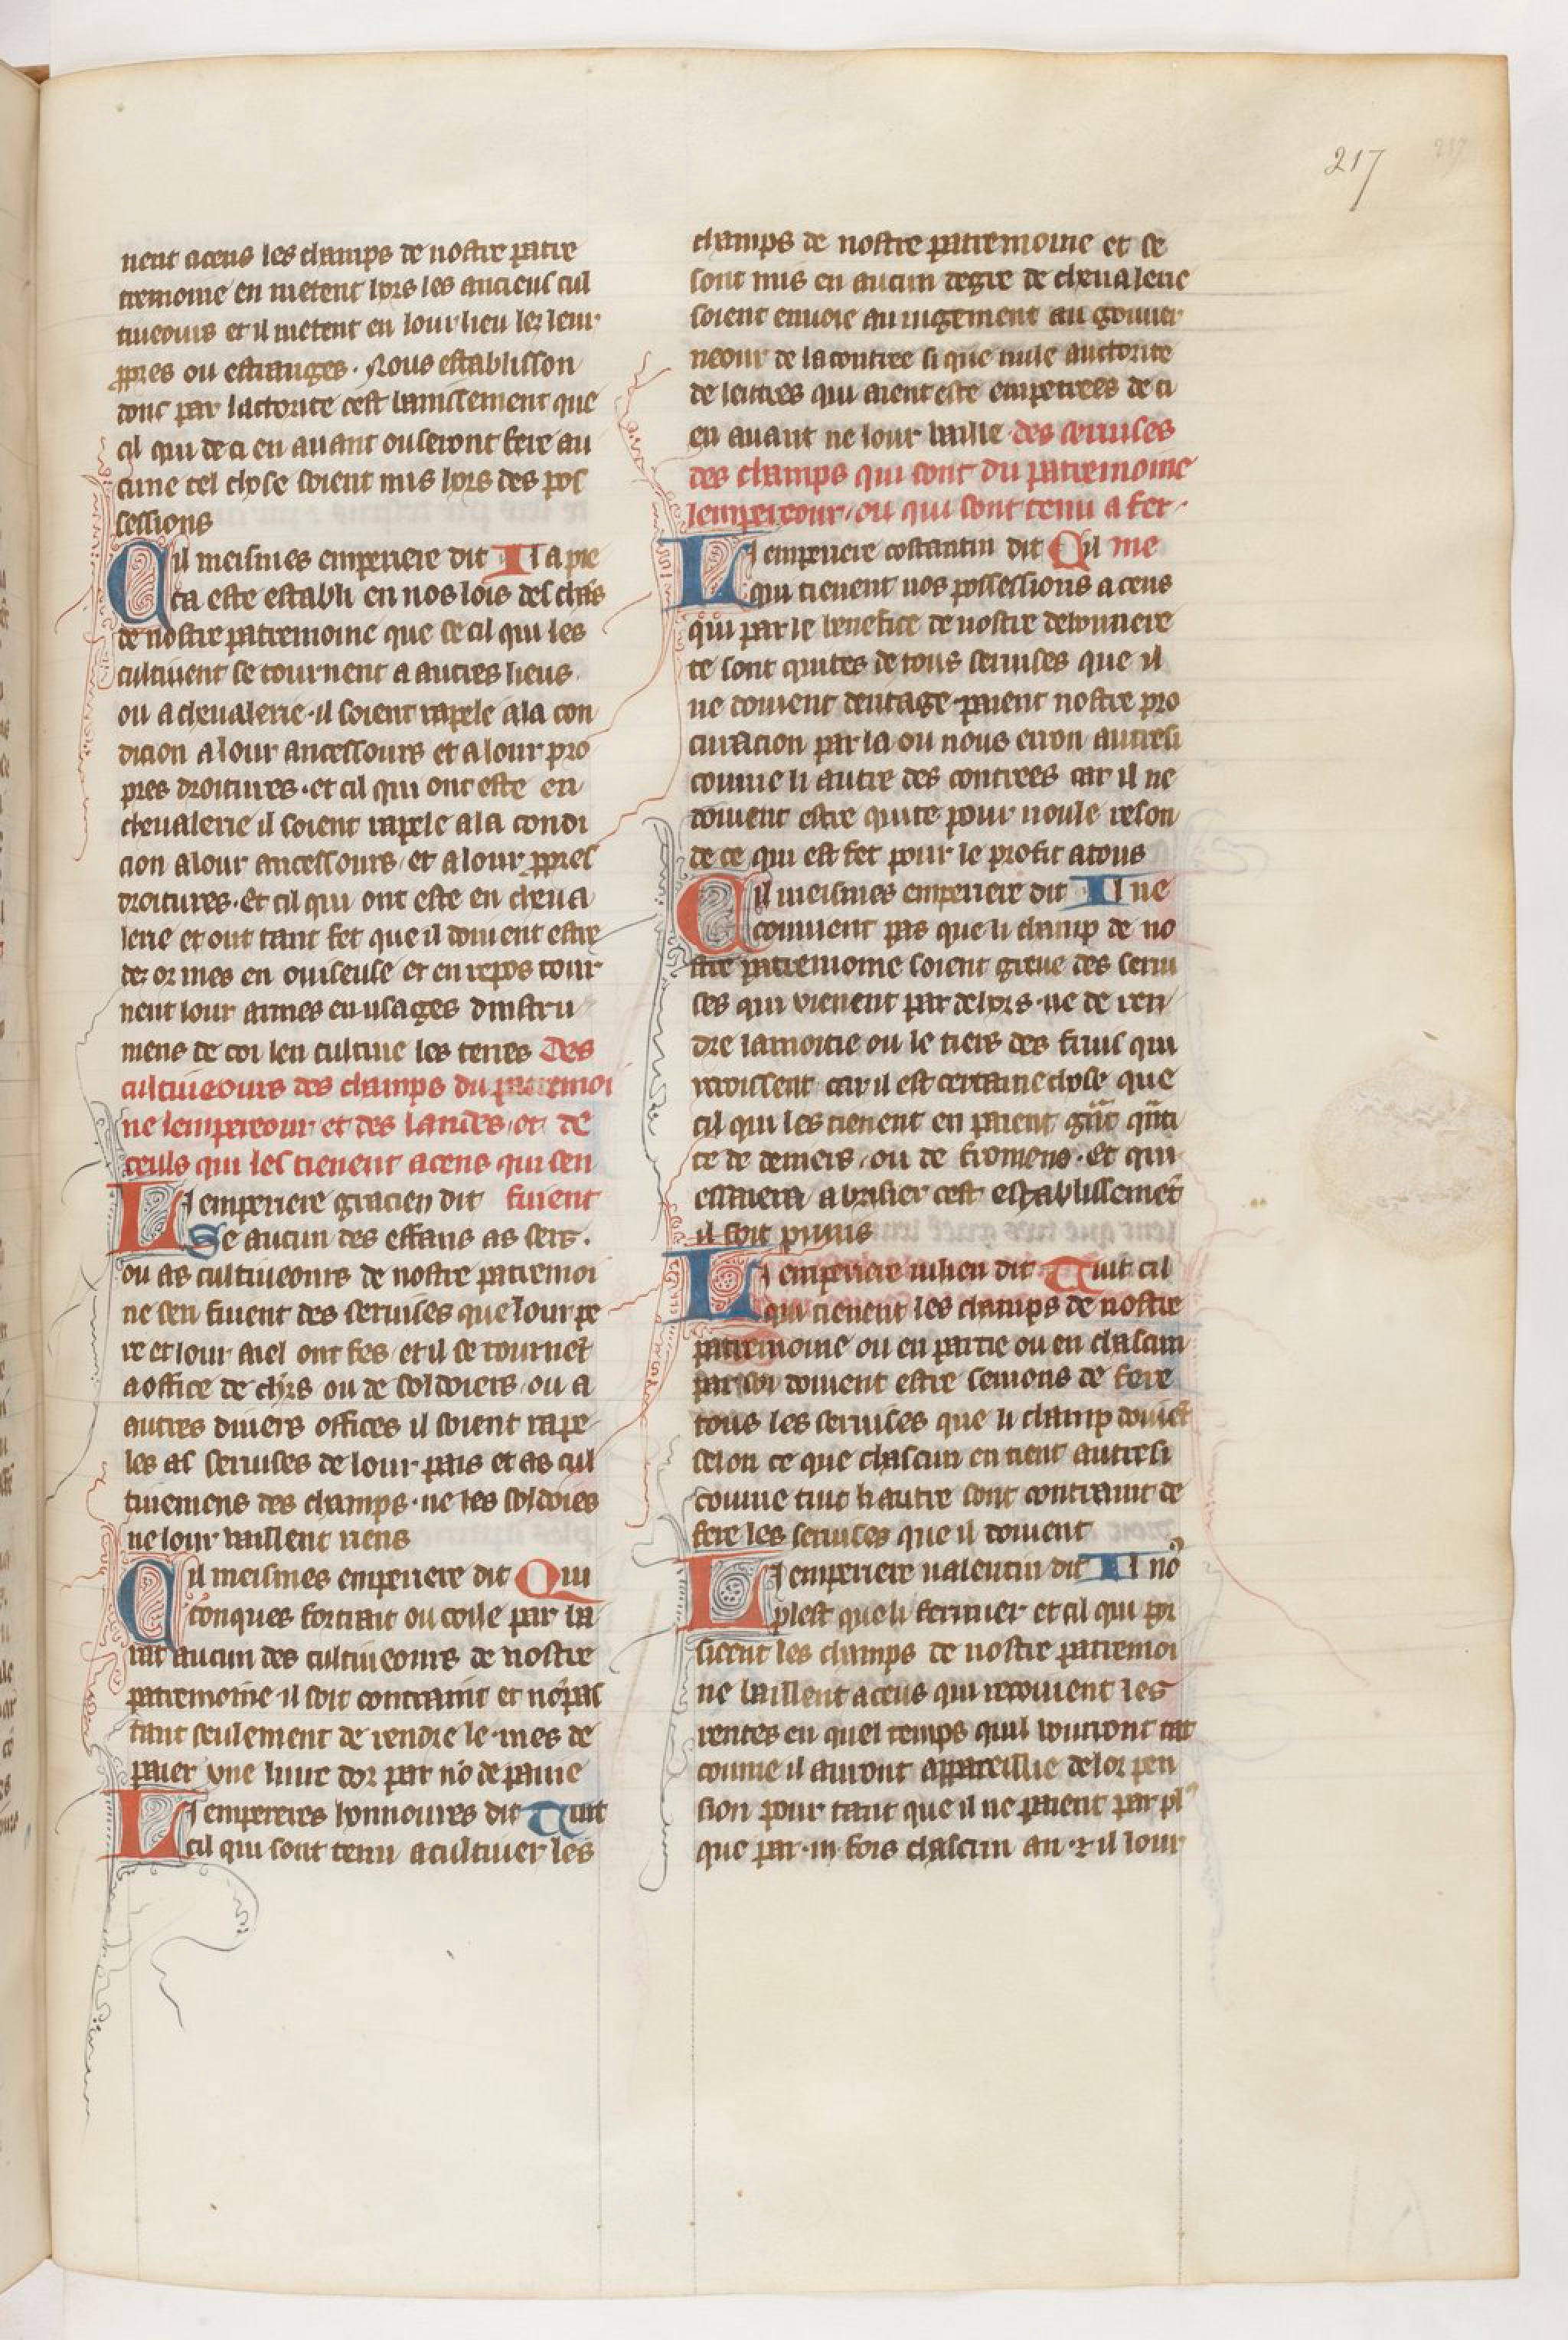 217
nent acens les champs de nostre patre
tremoine en metent hors les anciens cul
tiueours et il metent en lour lieu lez leur
ppres ou estranges. Nous establisson
donc par lactorite cest banissement que
cil qui de ci en auant ouseront fere au
cune tel chose soient mis hors des pos
sessions
Cil meismes emperiere dit Il a pie
ca este establi en nos lois des chās
de nostre patremoine que se cil qui les
cultiuent se tournent a autres lieus
ou a cheualerie. il soient rapele a la con
dicion a lour ancessours et a lour pro
pres droitures. et cil qui ont este en
cheualerie il soient rapele a la condi
cion a lour ancessours et a lour ppres
droitures. Et cil qui ont este en cheua
lerie et ont tant fet que il doiuent estre
dez or mes en ouiseuse et en repos tour
nent lour armes en usages dinstru
mens de coi len cultiue les terres Des
cultiueours des champs du patremoi
ne lempereour et des landes. et de
ceuls qui les tienent acens qui sen
Li emperiere gracien dit fuient
Se aucun des effans as sers.
ou as cultiueours de nostre patremoi
ne sen fuient des seruises que lour pe
re et lour aiel ont fes et il se tournēt
a office de clers ou de soldoiers ou a
autres diuers offices il soient rape
les as seruises de lour pais et as cul
tiuemens des champs. ne les soldoies
ne lour vaillent riens
Cil meismes emperiere dit Qui
conques fortrait ou coile par la
rat aucun des cultiueours de nostre
patremoine il soit contraint et nō pas
tant seulement de rendre le. mes de
paier vne liure dor par nō de paine
Li empereres honnoures dit Tuit
cil qui sont tenu a cultiuer les
champs de nostre patremoine et se
sont mis en aucun degre de cheualerie
soient enuoie au iugement au gouuer
neour de la contree si que nule auctorite
de lettres qui aient este empetrees de ci
en auant ne lour vaille des seruises
des champs qui sont du patremoine
lempereour. ou qui sont tenu a fer.
Li emperiere costantin dit Cil me
qui tienent nos possessions acens
qui par le benefice de nostre debonnere
te sont quites de tous seruises que il
ne doiuent dentage paient nostre pro
curacion par la ou nous erron autresi
comme li autre des contrees car il ne
doiuent estre quite pour noule reson
de ce qui est fet pour le profit atous
Cil meismes emperiere dit Il ne
conuient pas que li champ de no
stre patremoine soient greue des serui
ses qui vienent par dehors. ne de ren
dre la moitie ou le tiers des fruis qui
croissent car il est certaine chose que
cil qui les tienent en paient grāt quāti
te de deniers. ou de fromens. Et qui
essaiera a brisier cest establissemēt
il soit punis
Li emperiere iulien dit Tuit cil
qui tienent les champs de nostre
patremoine ou en partie ou en chascun
par soi doiuent estre semons de fere
tous les seruises que li champ doiuēt
selon ce que chascun en tient autresi
comme tuit li autre sont contraint de
fere les seruises que il doiuent
Li emperiere ualentin dit Il no9
plest que li fermier et cil qui por
sieent les champs de nostre patremoi
ne baillent a ceus qui recoiuent les
rentes en quel temps quil vourront tāt
comme il auront appareillie de lor pen
sion pour tant que il ne paient par pl9
que par .iii. fois chascun an. z il lour